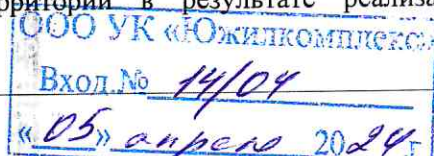 рритории в результате реализа
ООО УК «Южилкомплекс»
Вход.№ 14/04
«05» апреля 2024 г